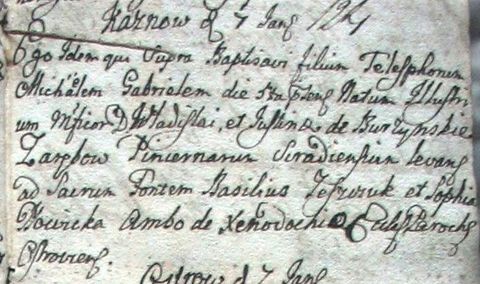 Karnow d 7 Jans 124
Ego Idem qui Supra Baptisavi filium Telesphorum
Michaelem Gabrielem die Natum Illustri
um Mficor D Wladislai, et Justinæ de Burzynskie
Zarębow Pincernarum Siradiensium levans
ad Sacrum Fontem Basilius et Sophia
Ambo de Xenodochio Ecclesiæ Parochs
Ostroviens.
d 7 Jans